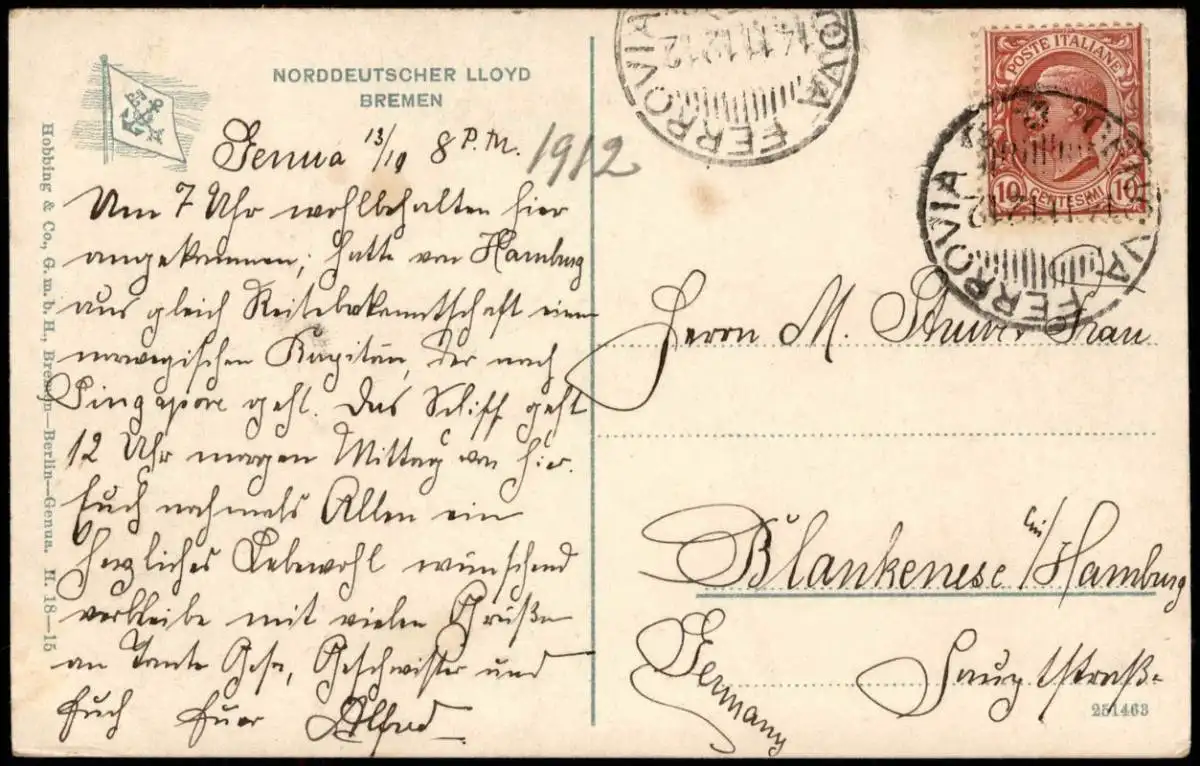 NORDDEUTSCHER LLOYD
BREMEN
Genua 13/10 8 P.M. 1912
Um 7 Uhr wohlbehalten hier
angekommen; hatte von Hamburg
aus gleich Reisebekanntschaft einen
norwegischen Kapitän, der nach
Singapore geht. Das Schiff geht
12 Uhr morgen Mittag von hier.
Euch nochmals Allen ein
herzliches Lebewohl wünschend
verbleibe mit vielen Grüßen
an Tante Gesa, Geschwister und
Euch Euer Alfred
Hobbing & Co., G. m. b. H., Bremen—Berlin—Genua. H. 18—15
FERROVIA
14.11.12.12
POSTE ITALIANE
10 CENTESIMI 10
FERROVIA
Herrn M. Frau
Blankenese bei/Hamburg
Hauptstraße
Germany
251463